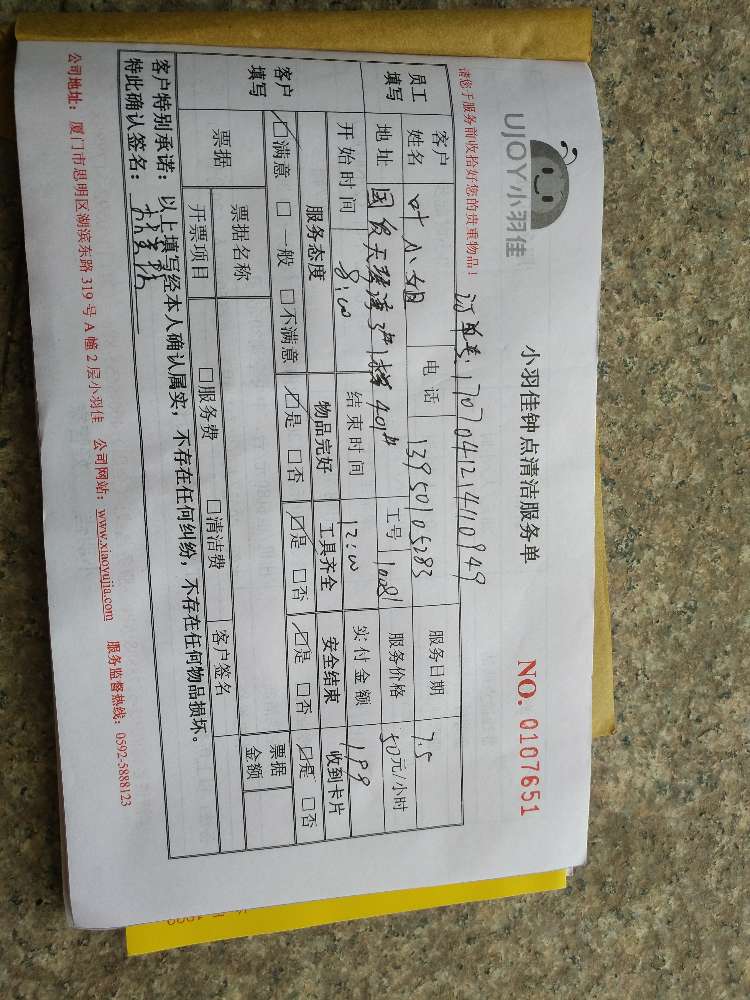 UJOY小羽佳
小羽佳钟点清洁服务单
NO. 0107651
请您于服务前收拾好您的贵重物品！
订单号：1707041214110949
员工填写 客户姓名 叶小姐 电话 13950105283 服务日期 7.5
地址 国贸天琴湾3#楼401# 工号 10081 服务价格 50元/小时
开始时间 8:00 结束时间 12:00 实付金额 199
客户填写 服务态度 物品完好 工具齐全 安全结束 收到卡片
☑满意 □一般 □不满意 ☑是 □否 ☑是 □否 ☑是 □否 ☑是 □否
票据 票据名称 票据金额
开票项目 □服务费 □清洁费 客户签名
客户特别承诺：以上填写经本人确认属实，不存在任何纠纷，不存在任何物品损坏。
特此确认签名：
公司地址：厦门市思明区湖滨东路 319 号 A 幢 2 层小羽佳 公司网站：www.xiaoyujia.com 服务监督热线：0592-5888123